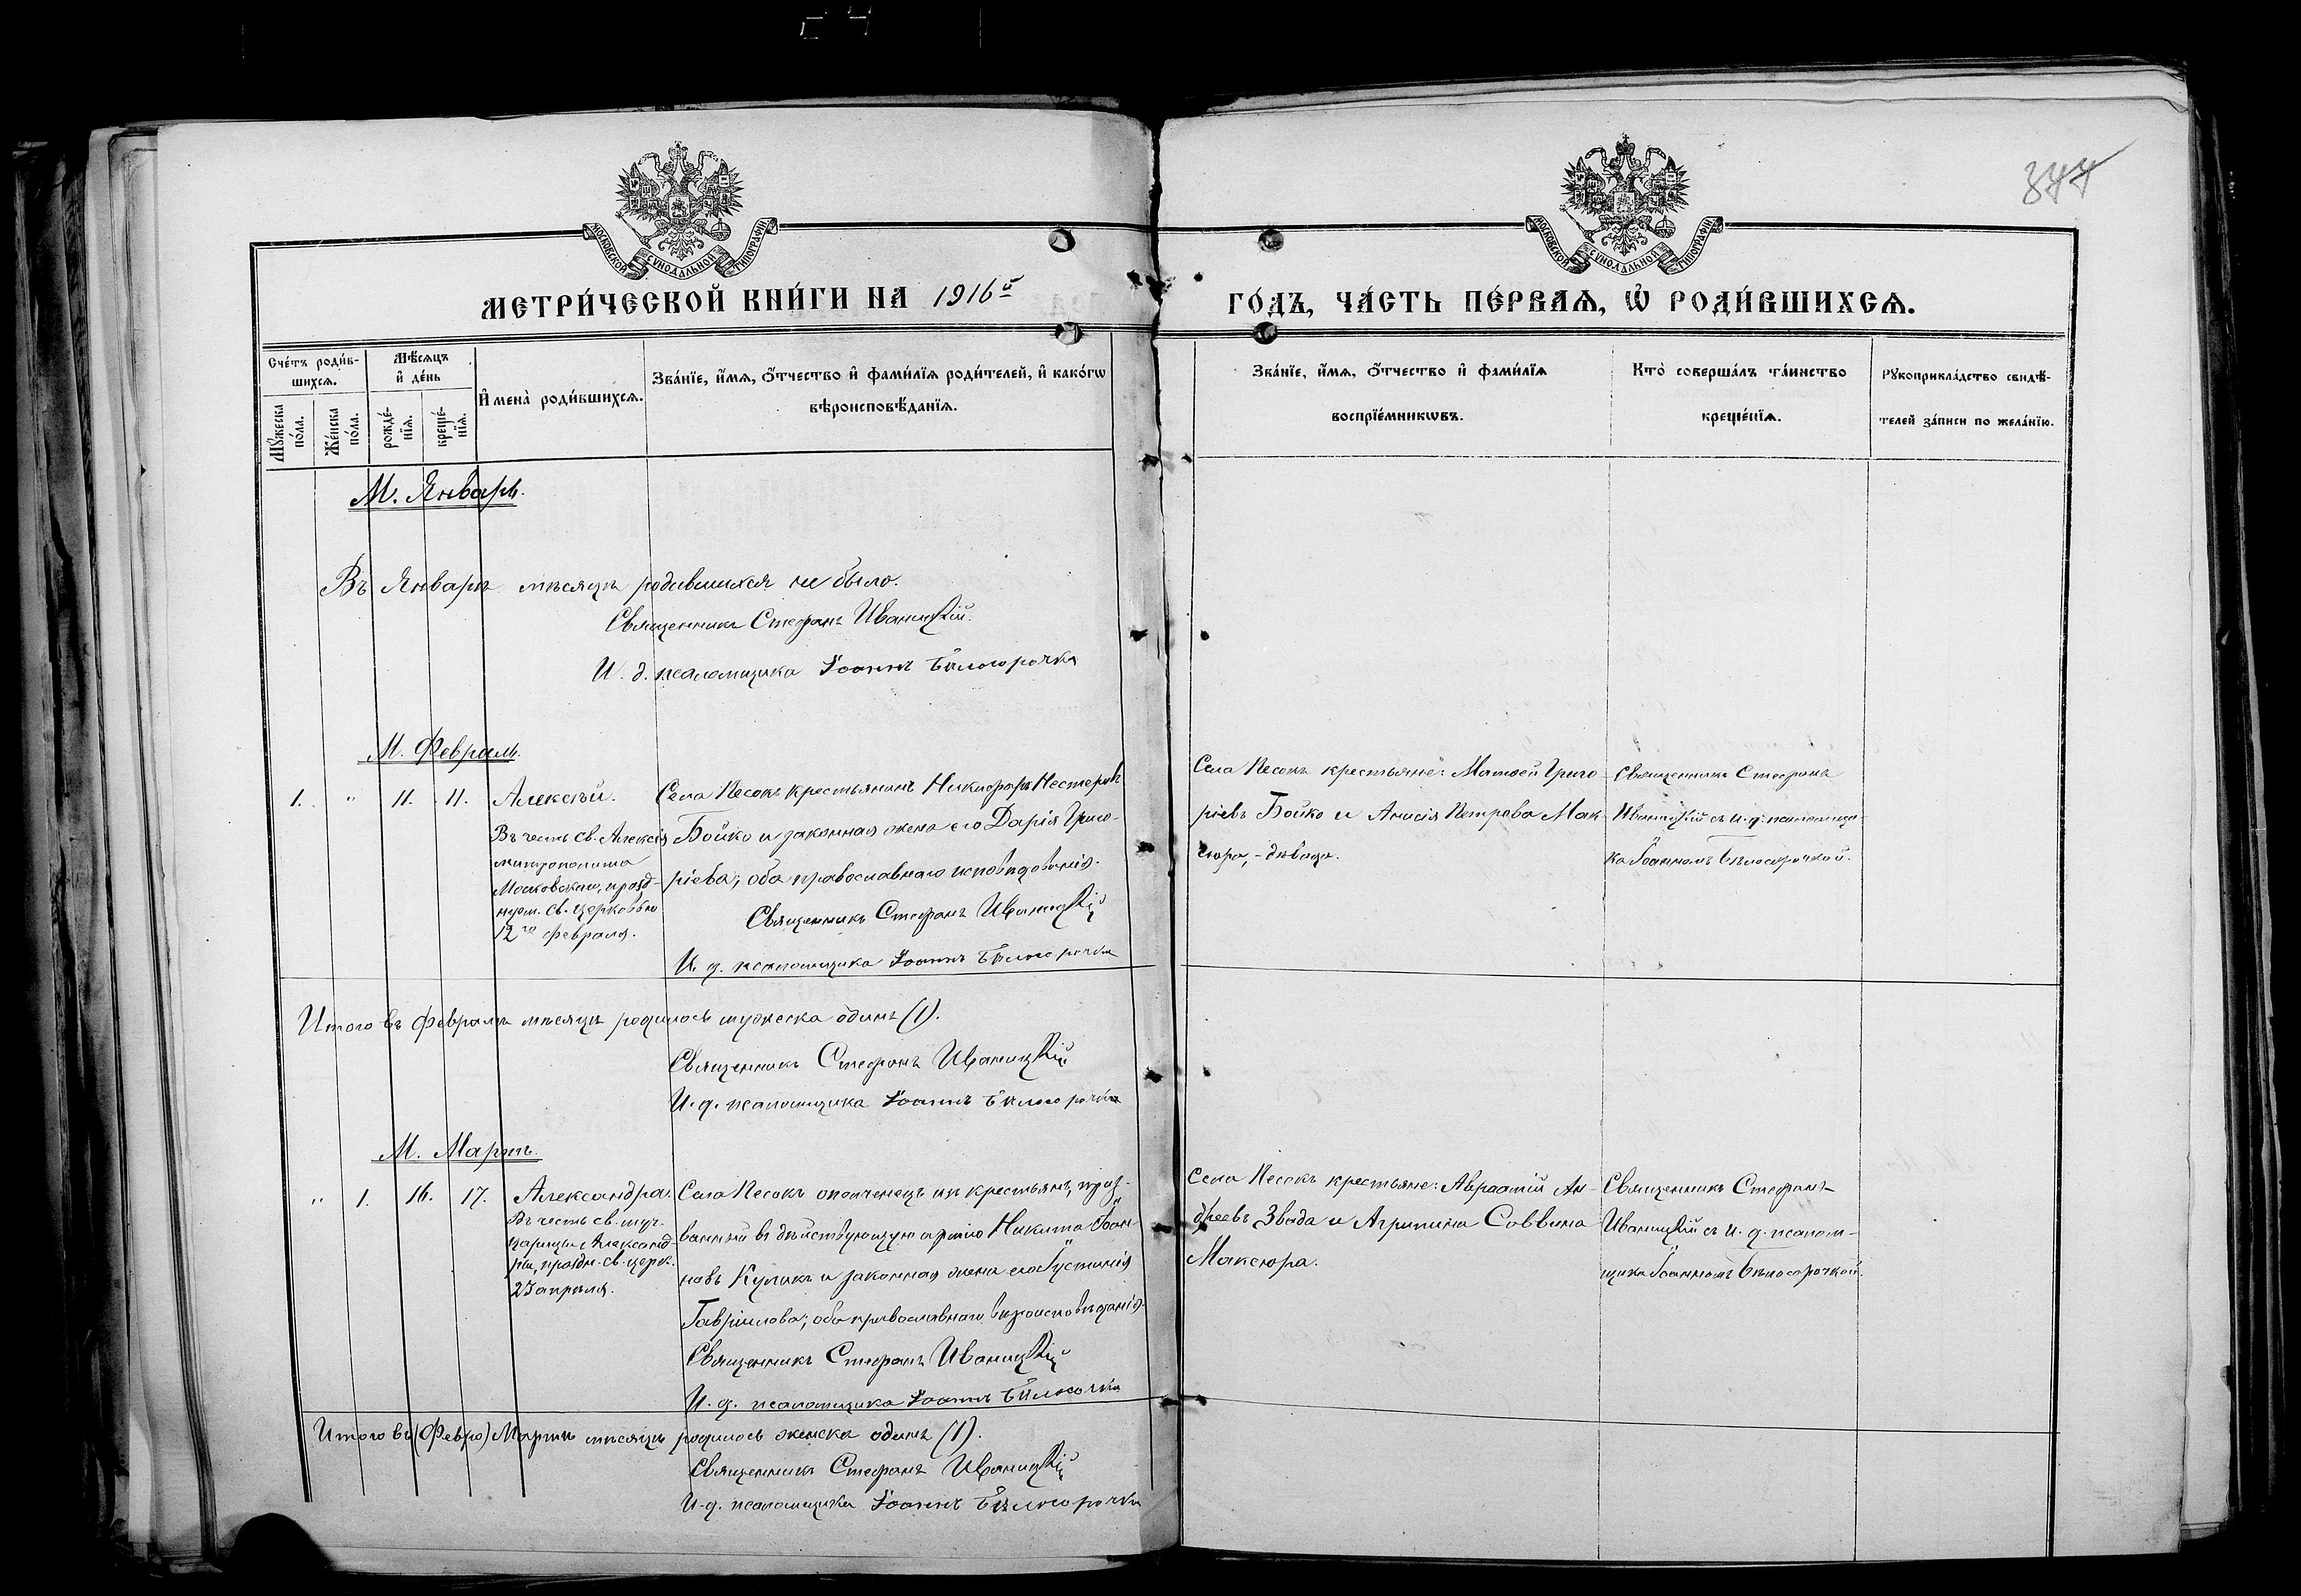 377
МОСКОВСКОЙ СУНОДАЛЬНОЙ ТИПОГРАФІИ
МОСКОВСКОЙ СУНОДАЛЬНОЙ ТИПОГРАФІИ
МЕТРИ́ЧЕСКОЙ КНИ́ГИ НА 1916й
ГО́ДЪ, ЧА́СТЬ ПЕ́РВАѦ, Ѡ҆ РОДИ́ВШИХСѦ.
Сче́тъ роди́в-
шихсѧ.
Мѣ́сѧцъ
и҆ де́нь
Мꙋ́жеска
по́ла.
Же́нска
по́ла.
рожде́-
нїѧ.
креще́-
нїѧ.
И҆мена̀ роди́вшихсѧ.
Зва́нїе, и҆́мѧ, Ѻ҆́тчество и҆ фами́лїѧ роди́телей, и҆ како́гѡ
вѣроисповѣ́данїѧ.
Зва́нїе, и҆́мѧ, Ѻ҆́тчество и҆ фами́лїѧ
воспрїе́мникѡвъ.
Кто̀ соверша́лъ та́инство
креще́нїѧ.
Рꙋкоприкла́дство свидѣ́-
телей за́писи по жела́нїю.
М. Январь.
Въ Январѣ мѣсяцѣ родившихся не было.
Священникъ Стефанъ Иваницкій.
И. д. псаломщика Іоаннъ Бѣлосорочка
М. Февраль.
1. " 11. 11. Алексѣй.
Въ честь св. Алексія
митрополита
Московскаго, празд-
нуем. св. церковью
12го февраля.
Села Песокъ крестьянинъ Никифоръ Нестеровъ
Бойко и законная жена его Дарія Григо-
ріева; оба православнаго исповѣдованія.
Священникъ Стефанъ Иваницкій
И. д. псаломщика Іоаннъ Бѣлосорочка
Села Песокъ крестьяне: Матвей Григо
ріевъ Бойко и Анисія Петрова Мак-
сюра, - дѣвица.
Священникъ Стефанъ
Иваницкій съ и. д. псаломщи-
ка Іоанномъ Бѣлосорочкой.
Итого въ Февралѣ мѣсяцѣ родилось мужеска одинъ (1).
Священникъ Стефанъ Иваницкій
И. д. псаломщика Іоаннъ Бѣлосорочка
М. Мартъ.
" 1. 16. 17. Александра.
Въ честь св. муч.
царицы Александ-
ры, праздн. св. церк.
23 апрѣля.
Села Песокъ ополченецъ изъ крестьянъ, приз-
ванный въ дѣйствующую армію Никита Іоан-
новъ Куликъ и законная жена его Іустинія
Гавріилова; оба православнаго вѣроисповѣданія.
Священникъ Стефанъ Иваницкій
И. д. псаломщика Іоаннъ Бѣлосочка
Села Песокъ крестьяне: Авраамій Ан-
дреевъ Звада и Агрипина Саввина
Максюра.
Священникъ Стефанъ
Иваницкій съ и. д. псалом-
щика Іоанномъ Бѣлосорочкой.
Итого въ (Февра) Мартѣ мѣсяцѣ родилось женска одинъ (1).
Священникъ Стефанъ Иваницкій
И. д. псаломщика Іоаннъ Бѣлосорочка